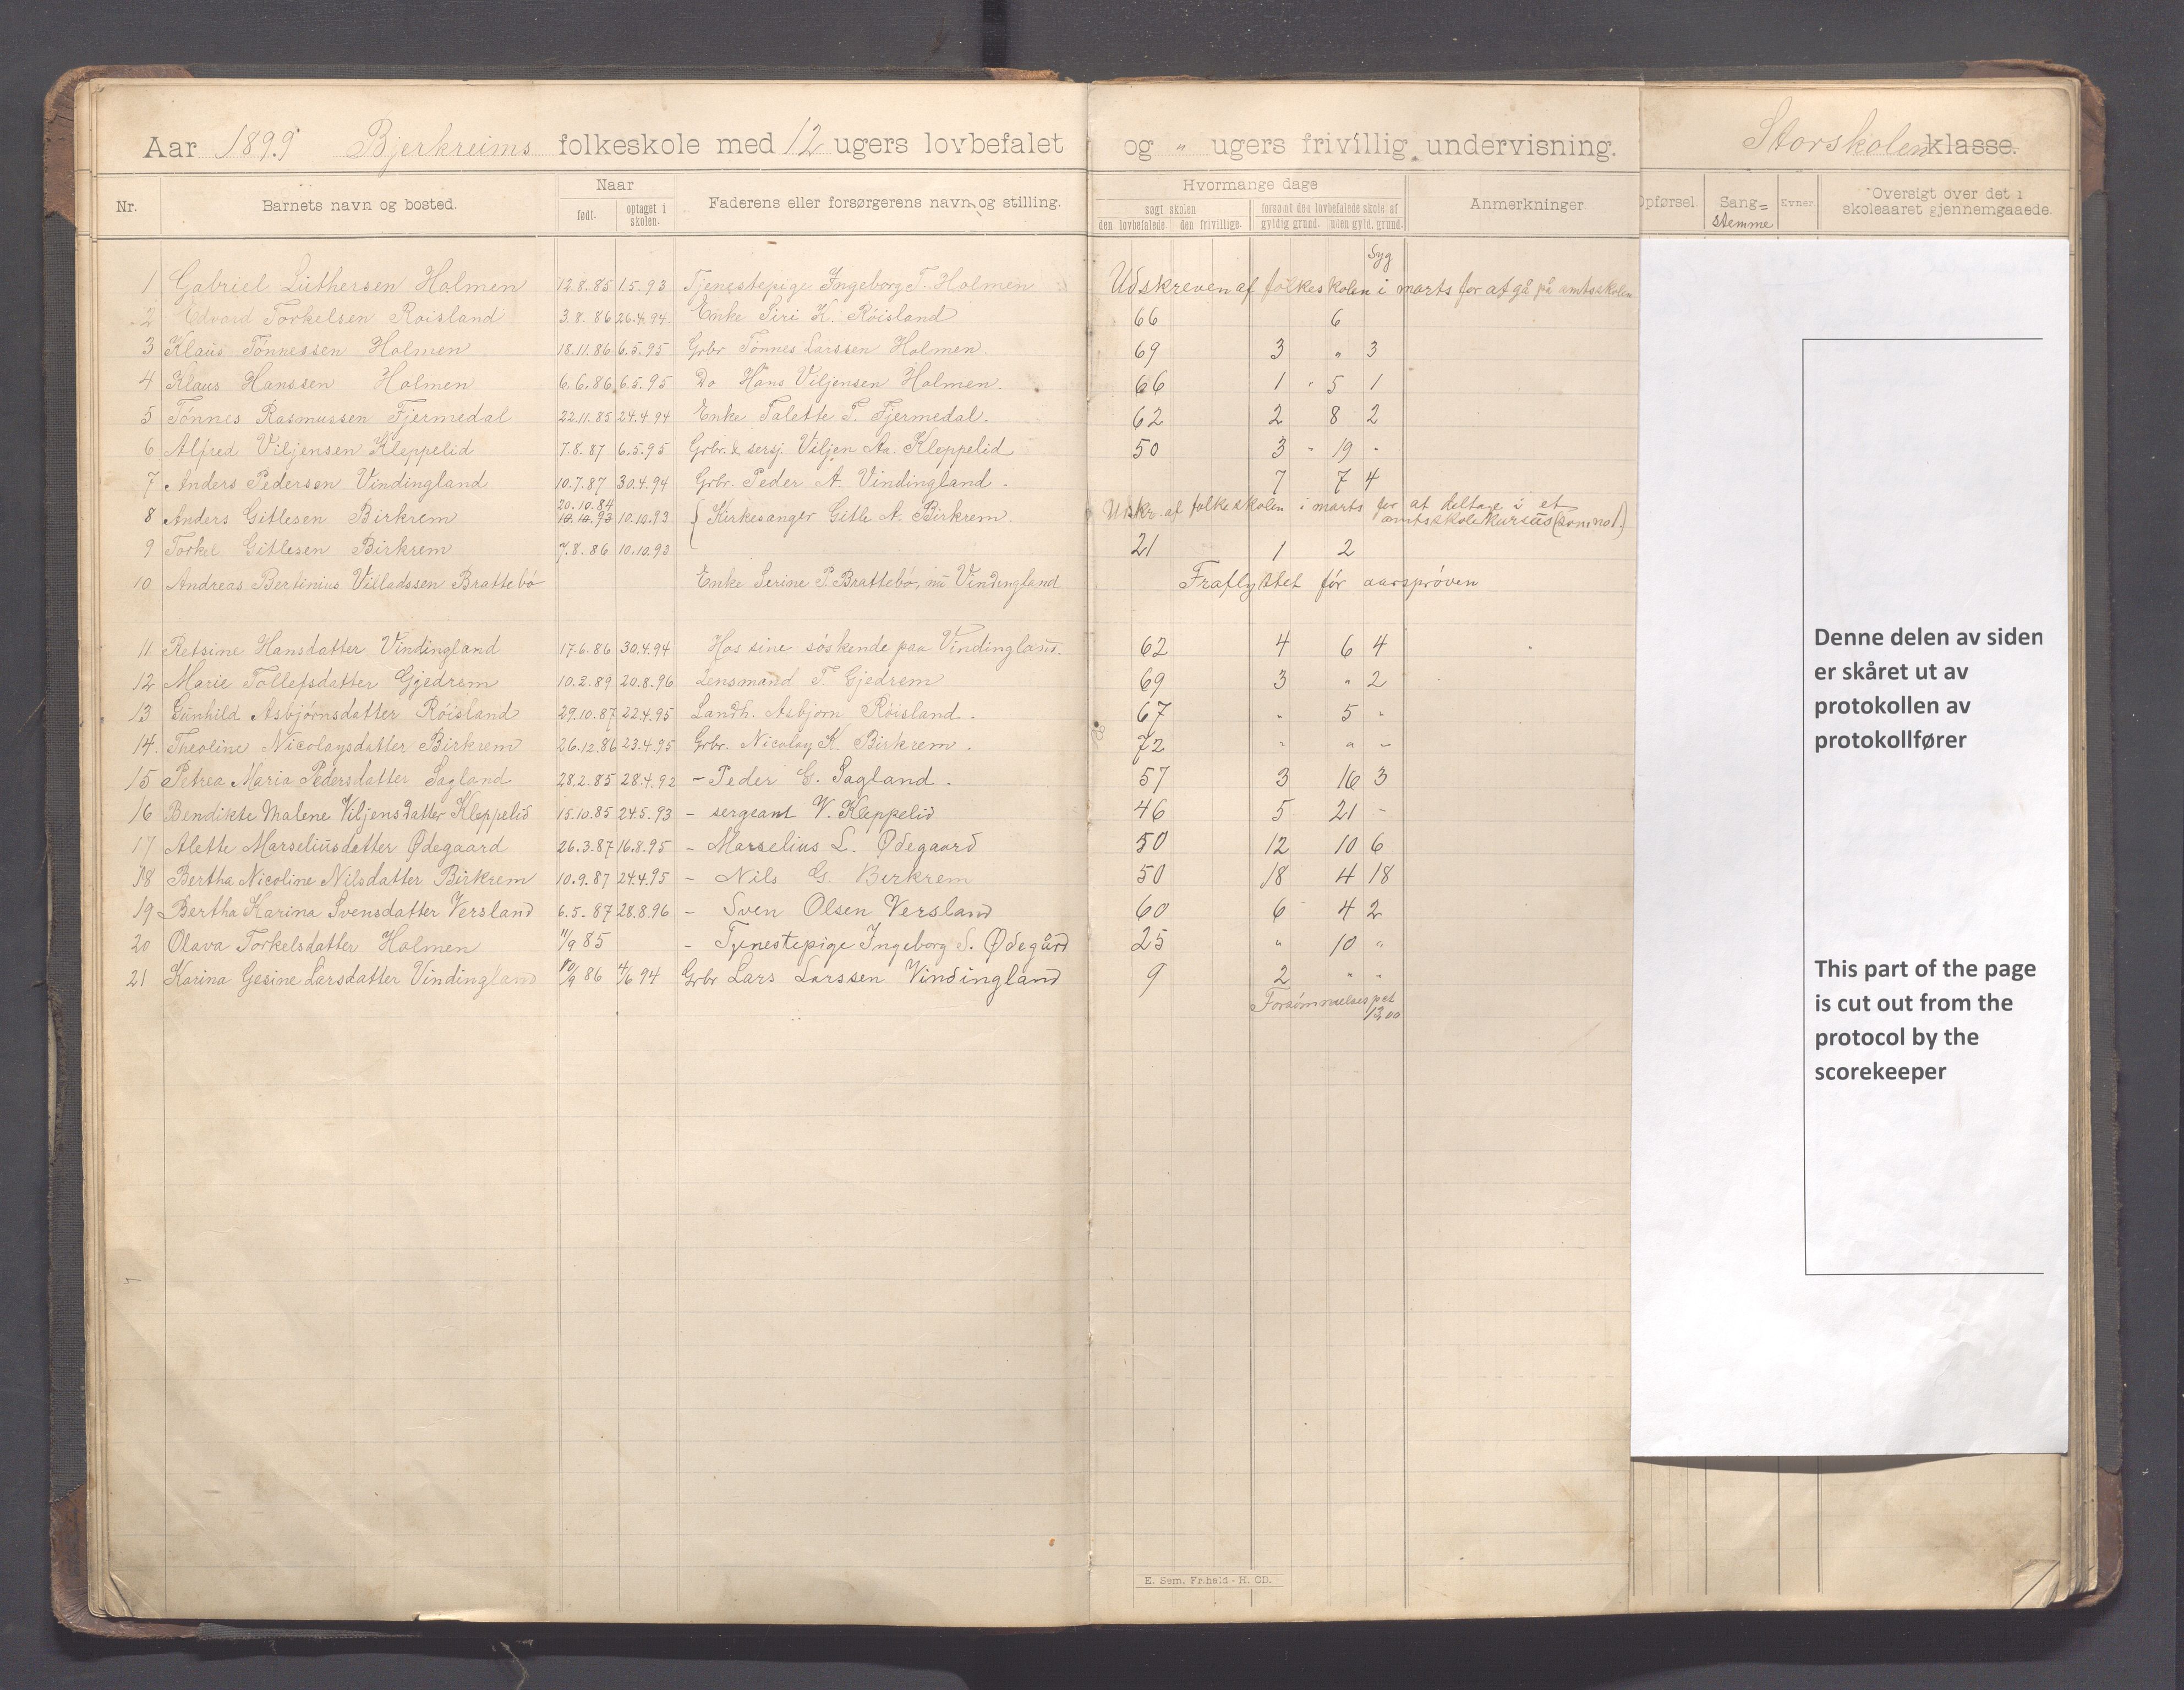 Aar 1899 Bjerkreims folkeskole med 12 ugers lovbefalet og " ugers frivillig undervisning. Storskolen klasse.
Nr. Barnets navn og bosted. Naar født. optaget i skolen. Faderens eller forsørgerens navn og stilling. Hvormange dage søgt skolen den lovbefalede den frivillige. forsømt den lovbefalede skole af gyldig grund. uden gyld. grund. Anmerkninger Opførsel. Sang= stemme Evner. Oversigt over det i skoleaaret gjennemgaaede.
Syg
1 Gabriel Luthersen Holmen 12.8.85 1.5.93 Tjenestepige Ingeborg T. Holmen Udskreven af folkeskolen i marts for at gå på amtsskolen
2 Edvard Torkelsen Roisland 3.8.86 26.4.94 Enke Siri K. Röisland 66 6
3 Klaus Tönnessen Holmen 18.11.86 6.5.95 Grbr Tönnes Larssen Holmen. 69 3 " 3
4 Klaus Hanssen Holmen 6.6.86 6.5.95 Do Hans Viljensen Holmen. 66 1 5 1
5 Tönnes Rasmussen Fjermedal 22.11.85 24.4.94 Enke Talette T. Fjermedal. 62 2 8 2
6 Alfred Viljensen Kleppelid 7.8.87 6.5.95 Grbr. & sersj. Viljen Aa. Kleppelid 50 3 19 "
7 Anders Pedersen Vindingland 10.7.87 30.4.94 Grbr. Peder A. Vindingland. 7 7 4
8 Anders Gitlesen Birkrem 20.10.84 10.10.93 10.10.93 { Kirkesanger Gitle A. Birkrem. Udskr. af folkeskolen i marts for at deltage i et amtsskolekursus (som no 1.)
9 Torkel Gitlesen Birkrem 7.8.86 10.10.93 21 1 2
10 Andreas Bertinius Villadssen Brattebö Enke Serine P. Brattebö, nu Vindingland Fraflyttet för aarspröven
11 Retsine Hansdatter Vindingland 17.6.86 30.4.94 Hos sine söskende paa Vindingland. 62 4 6 4
12 Marie Tollefsdatter Gjedrem 10.2.89 20.8.96 Lensmand T. Gjedrem 69 3 " 2
13 Gunhild Asbjörnsdatter Röisland 29.10.87 22.4.95 Landh. Asbjörn Röisland. 67 " 5 "
14. Theoline Nicolaysdatter Birkrem 26.12.86 23.4.95 Grbr. Nicolay K. Birkrem. 72 " " "
15 Petrea Maria Pedersdatter Sagland 28.2.85 28.4.92 - Peder G. Sagland. 57 3 16 3
16 Bendikte Malene Viljensdatter Kleppelid 15.10.85 24.5.93 - sergeant V. Kleppelid 46 5 21 -
17 Alette Marseliusdatter Ødegaard 26.3.87 16.8.95 - Marselius L. Ødegaard 50 12 10 6
18 Bertha Nicoline Nilsdatter Birkrem 10.9.87 24.4.95 - Nils G. Birkrem 50 18 4 18
19 Bertha Karina Svensdatter Versland 6.5.87 28.8.96 - Sven Olsen Versland 60 6 4 2
20 Olava Torkelsdatter Holmen 11/9 85 - Tjenestepige Ingeborg S. Ødegård 25 " 10 "
21 Karina Gesine Larsdatter Vindingland 10/9 86 4/6 94 Grbr Lars Larssen Vindingland 9 2 " "
Forsömmelsespct 13,00
Denne delen av siden
er skåret ut av
protokollen av
protokollfører
This part of the page
is cut out from the
protocol by the
scorekeeper
E. Sem, Fr.hald - H. CD.